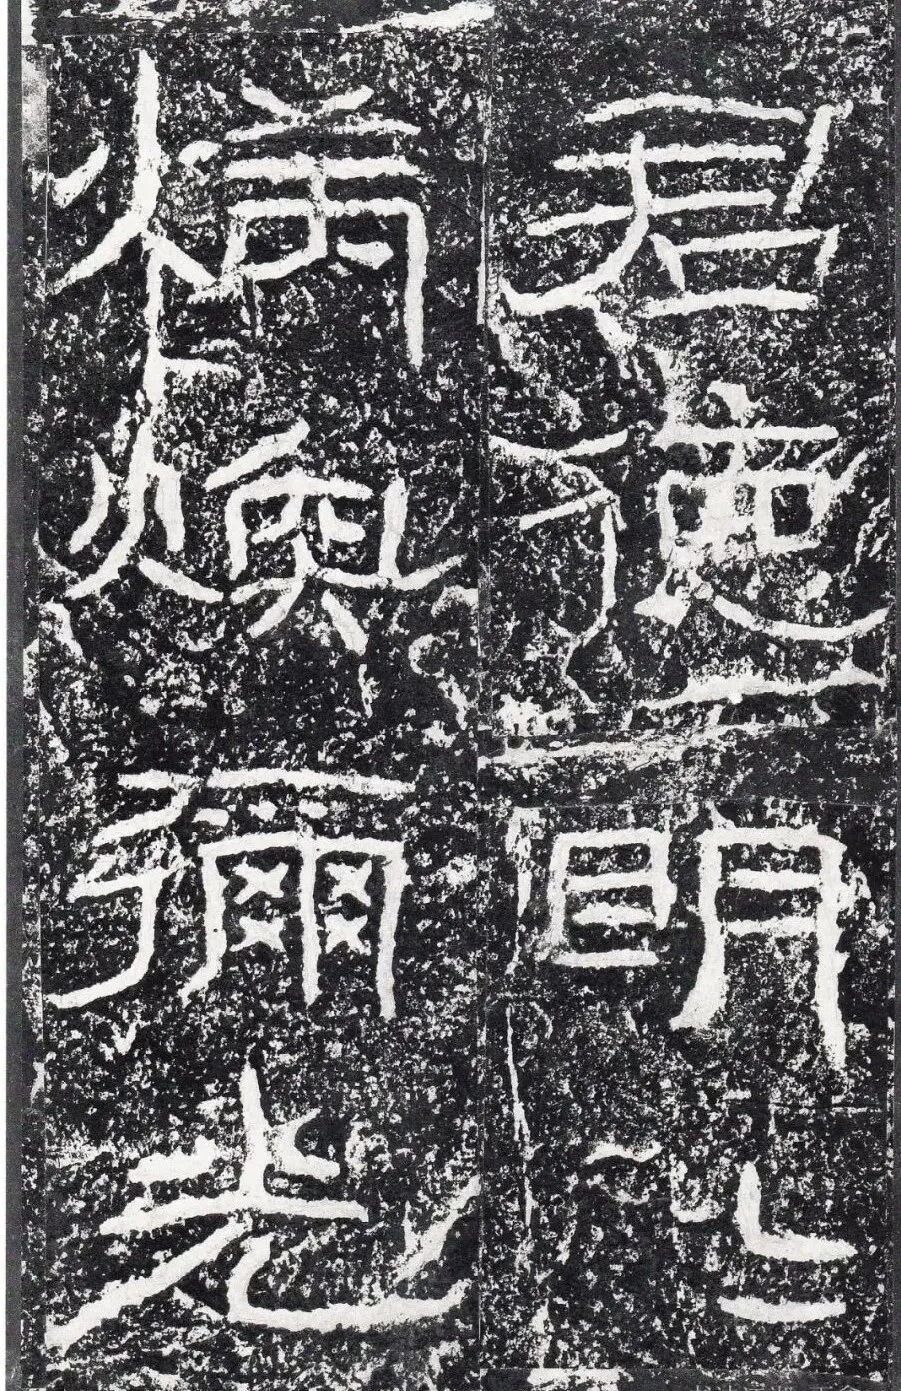 君德明〻
炳煥彌光